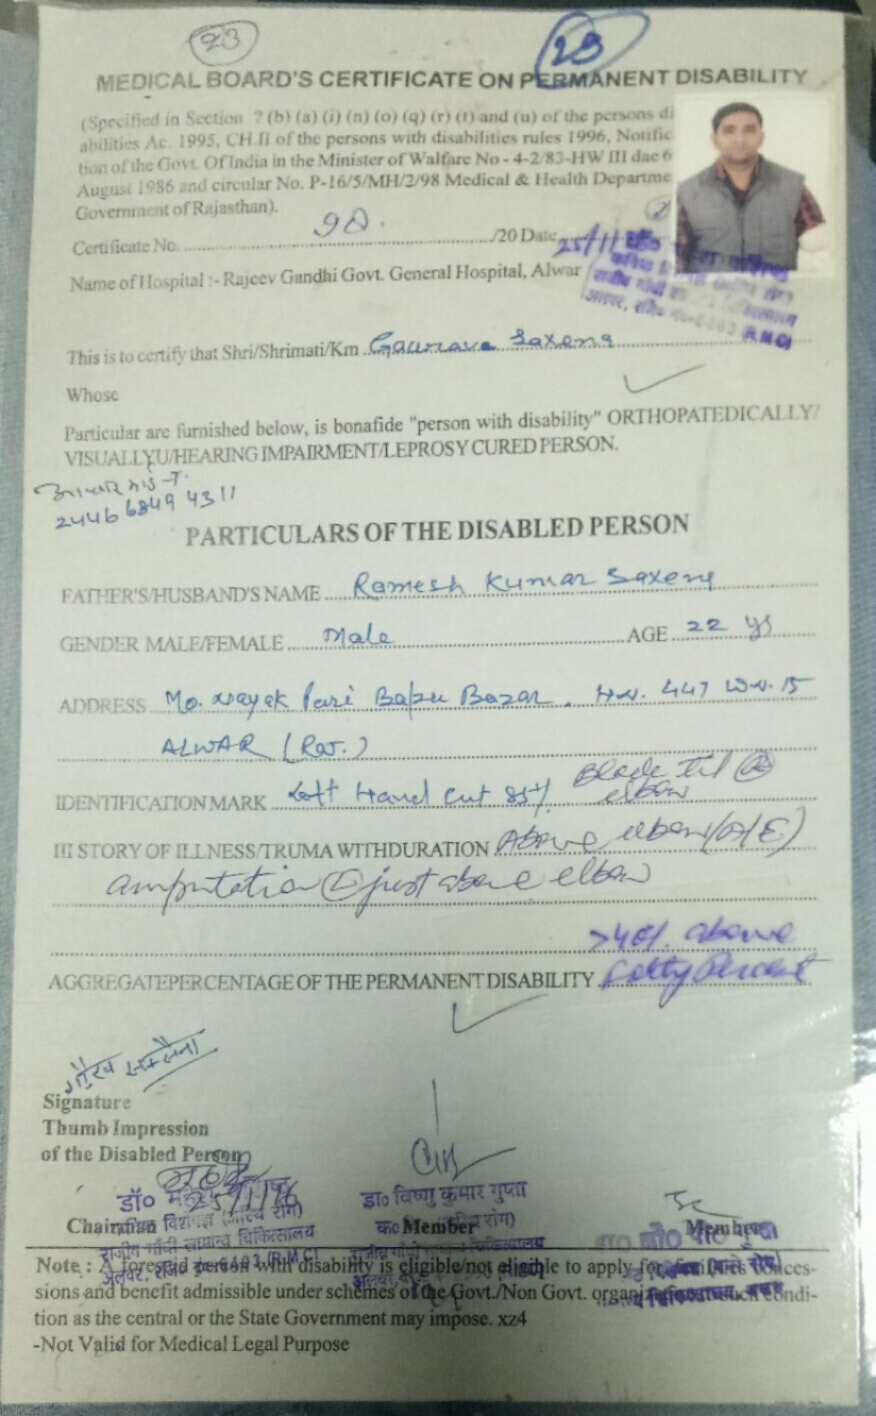 23
23
MEDICAL BOARD'S CERTIFICATE ON PERMANENT DISABILITY
(Specified in Section ? (b) (a) (i) (n) (o) (q) (r) (t) and (u) of the persons di
abilities Ac. 1995, CH.II of the persons with disabilities rules 1996, Notific
tion of the Govt. Of India in the Minister of Walfare No - 4-2/83-HW III dae 6
August 1986 and circular No. P-16/5/MH/2/98 Medical & Health Departme
Government of Rajasthan).
Certificate No. 90. /20 Date 25/11
Name of Hospital :- Rajeev Gandhi Govt. General Hospital, Alwar
अलवर, राज० (R.M.C)
This is to certify that Shri/Shrimati/Km Gaurava Saxena
Whose
Particular are furnished below, is bonafide "person with disability" ORTHOPATEDICALLY/
VISUALLYU/HEARING IMPAIRMENT/LEPROSY CURED PERSON.
2446 6849 4311
PARTICULARS OF THE DISABLED PERSON
FATHER'S/HUSBAND'S NAME Ramesh Kumar Saxena
GENDER MALE/FEMALE Male AGE 22 ys
ADDRESS Mo. Nayak Bapu Bazar. H.N. 447 W.N. 15
ALWAR (Raj.)
IDENTIFICATION MARK Left Hand cut 85% elbow
III STORY OF ILLNESS/TRUMA WITHDURATION Above elbow (A/E)
amputation (L) just above elbow
>40% above
AGGREGATEPERCENTAGE OF THE PERMANENT DISABILITY
गौरव सक्सैना
Signature
Thumb Impression
of the Disabled Person
डॉ० डा० विष्णु कुमार गुप्ता
Chairman Member Member
राजीव गाँधी सामान्य चिकित्सालय
अलवर, राज० (R.M.C)
Note : A foresaid person with disability is eligible/not eligible to apply for
sions and benefit admissible under schemes of the Govt./Non Govt. such condi-
tion as the central or the State Government may impose. xz4
-Not Valid for Medical Legal Purpose